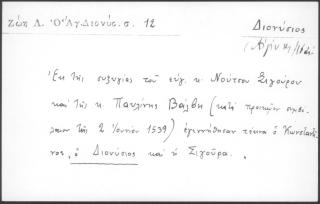 Ζώη Λ. Ὁ Ἅγ. Διονύσ. σ. 12
Διονύσιος
Ἐκ τῆς συζυγίας τοῦ εὐγ. κ. Νούτσου Σιγούρου
καὶ τῆς κ. Παυλίνης Βάλβη (κατὰ προικῷον συμβό-
λαιον τῆς 2 Ἰουνίου 1539) ἐγεννήθησαν τέκνα ὁ Κωνσταντῖ-
νος, ὁ Διονύσιος καὶ ἡ Σιγούρα.